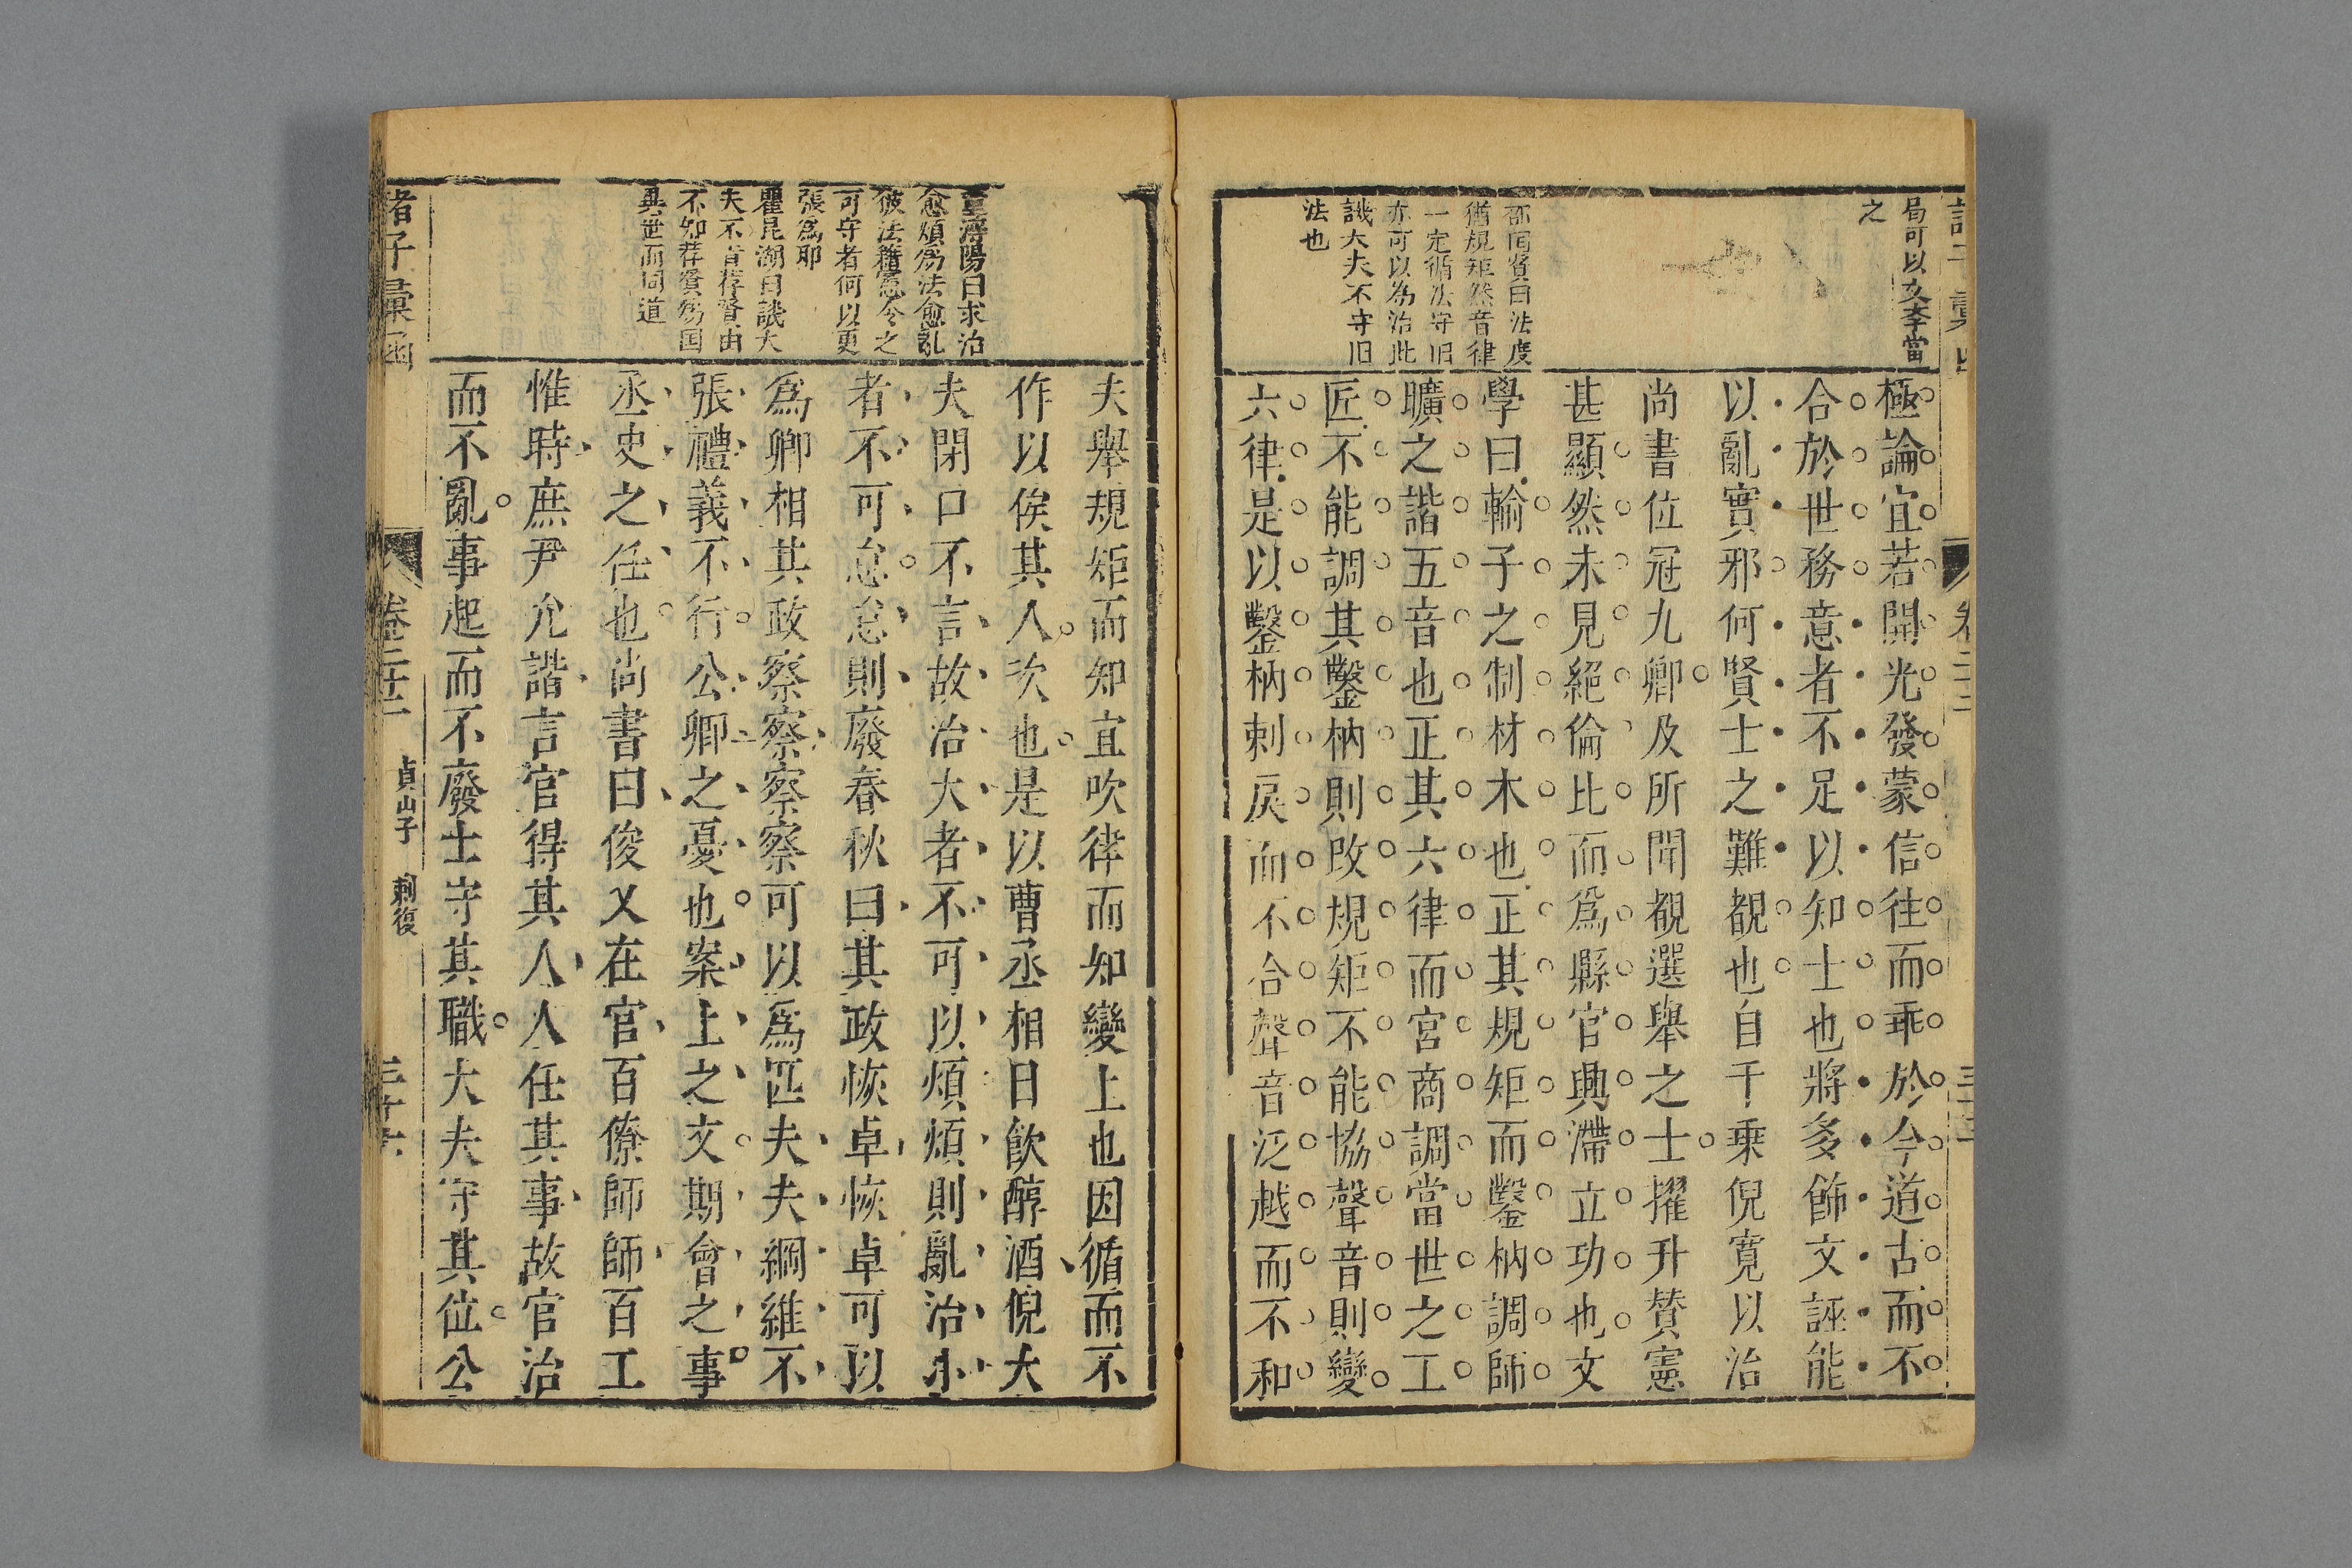 局可以友李當
之
極論宜若開光發蒙信往而乖於今道古而不
合於世務意者不足以知士也將多飾文誣能
以亂實邪何賢士之難覩也自千乗倪寛以治
尚書位冠九卿及所聞覩選舉之士擢升賛憲
甚顯然未見絕倫比而爲縣官興滯立功也文
學曰輸子之制材木也正其規矩而鑿枘調師
曠之諧五音也正其六律而宮商調當世之工
匠不能調其鑿枘則改規矩不能協聲音則變
六律是以鑿枘刺戾而不合聲音泛越而不和
曰法度
猶規矩然音律
一定循法守旧
亦可以為治此
譏大夫不守旧
法也
夫舉規矩而知宜吹律而知變上也因循而不
作以俟其人次也是以曹丞相日飲醇酒倪大
夫閉口不言故治大者不可以煩煩則亂治小
者不可怠怠則廢春秋曰其政恢卓恢卓可以
爲卿相其政察察察察可以爲匹夫夫綱維不
張禮義不行公卿之憂也案上之文期會之事
丞史之任也尚書曰俊乂在官百僚師師百工
惟時庶尹允諧言官得其人人任其事故官治
而不亂事起而不廢士守其職大夫守其位公
陽曰求治
愈煩為法愈亂
彼法籍憲令之
可守者何以更
張為耶
瞿昆湖曰譏大
夫不肯荐賢由
不知荐賢為国
與世而同道
諸子彙函
卷二十二
貞山子
刺復
三十六